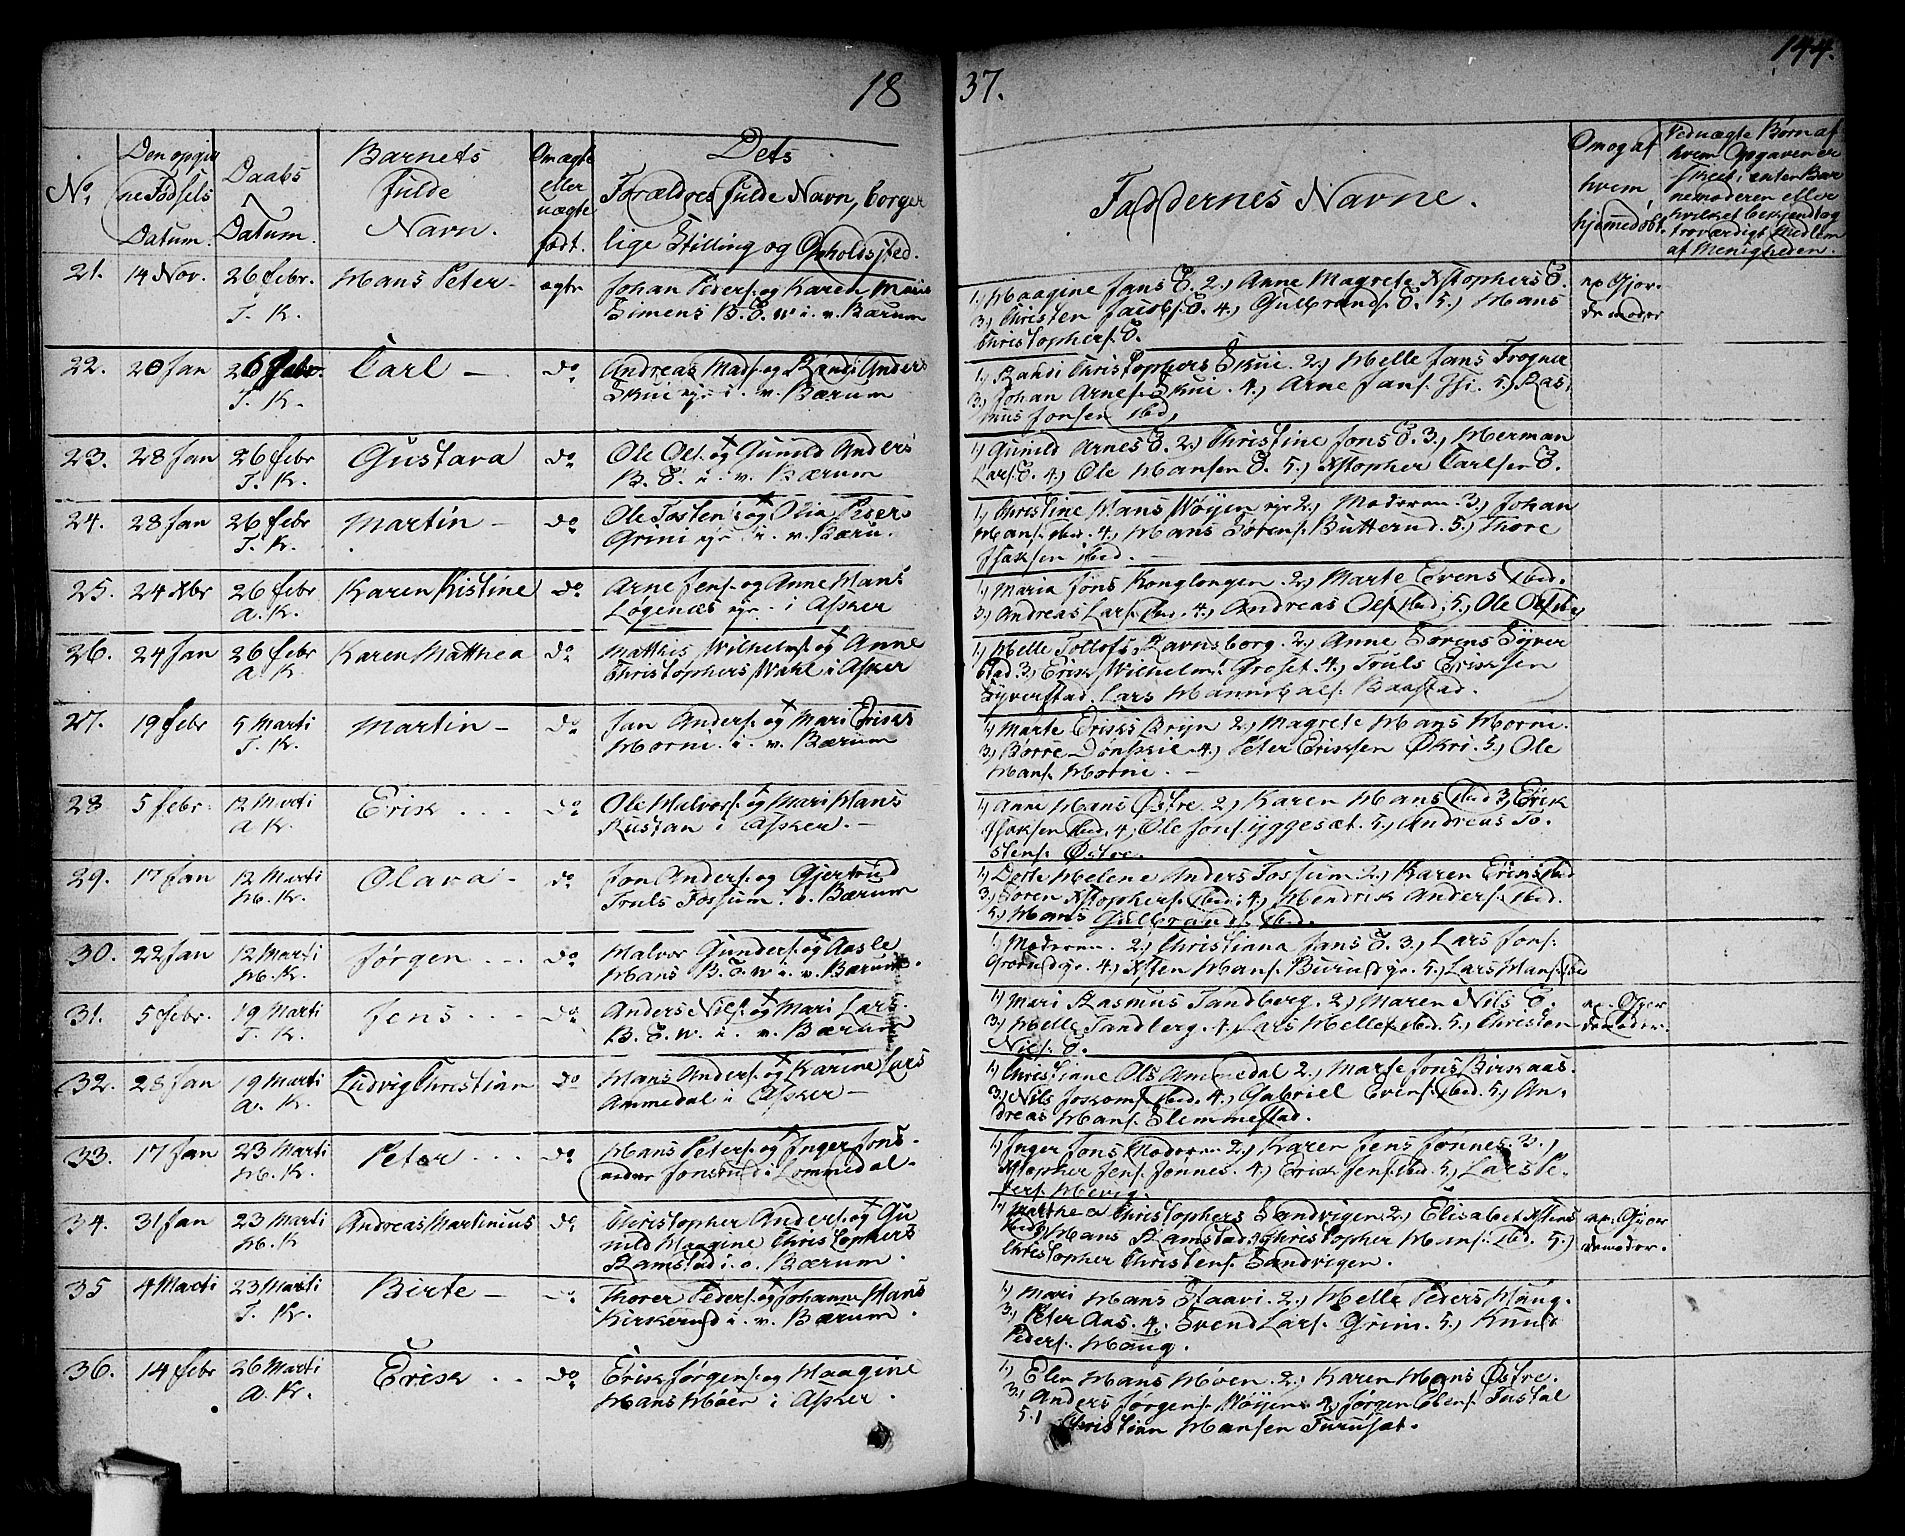 18 37. 144.
No. Den opgivne Fødsels Datum. Daabs Datum. Barnets fulde Navn. Om ægte eller uægte født. Dets Forældres fulde Navn, borgerlige Stilling og Opholdssted. Faddernes Navne. Om og af hvem hjemmedøbt.
21. 14 Nov. 26 febr. Hans Peter - ægte Johan Peders. og Karen Marie 1,) Haagine Jans E. 2,) Anne Magrete Xstophers E.
T. K. Simens B. E. W i. v. Bærum 3,) Christen Jacobs. E. 4,) Gulbrand E. 5,) Hans
Christophers. E.
22. 20 Jan 26 febr. Carl - do Andreas Mads. og Randi Anders 1,) Randi Christophers Skui. 2,) Helle Jans Frogner
T. K. Skui eje i. v. Bærum 3,) Johan Arnes. Skui. 4,) Arne Jans. 5,) Ras
mus Jonsen ibd,
23. 28 Jan 26 febr Gustava do Ole Ols. og Gunild Anders 1,) Gunild Arnes E. 2,) Christine Jons E. 3,) Herman
T. K. B. E. i. v. Bærum Lars. E. 4,) Ole Hansen E. 5,) Xstopher Carlsen E.
24. 28 Jan 26 febr Martin - do Ole Tostens. og Olia Peser 1,) Christine Hans Wøyen eje 2,) Moderen. 3,) Johan
T. K. Grini eje i. v. Bæru. Hans. ibd. 4,) Hans Sørens. Butterud. 5,) Thore
Isaksen ibid.
25. 24 Xbr 26 febr Karen Kistine do Arne Jens. og Anne Hans 1,) Maria Jons Konglongen. 2,) Marte Evens ibid.
A. K. Løgenæs eje - i Asker 3,) Andreas Lars. ibd. 4,) Andreas Ols. ibid; 5,) Ole Ols. ibd
26. 24 Jan 26 febr Karen Mathea do Mathis Wilhelms. og Anne 1,) Helle Tollofs. Ravnsborg. 2,) Anne Sørens Syver
A. K. Christophers Wahl i Asker stad. 3,) Erik Wilhelms. Groset. 4,) Truls Eriksen
Syverstad. Lars Hannibals. Baastad.
27. 19 febr 5 Marti Martin - do Jan Anders. og Mari Eriks 1,) Marte Eriks Bryn 2,) Magrete Hans Horni.
T. K. Horni. i. v. Bærum 3,) Børre Dønskie 4,) Peter Eriksen Økri. 5,) Ole
Hans. Horni. -
28 5 febr. 12 Marti Erik . . . do Ole Halvors. og Mari Hans 1,) Anne Hans Østre. 2,) Karen Hans ibid 3,) Erik
A K. Rustan i Asker. - Isaksen ibid. 4, Ole Jons. yggesæt. 5,) Andreas To-
stens. Østre.
29. 17 Jan 12 Marti Olava - do Jon Anders. og Gjertrud 1,) Dorte Helene Anders Fossum 2,) Karen Eriks ibd
H. K. Truls Fossum i. v. Bærum 3,) Søren Xstophers. ibid. 4,) Hendrik Anders. ibid.
5,) Hans Gulbrands. ibid.
30. 22 Jan 12 Marti Jørgen . . . do Halvor Gunders. og Aasle 1,) Moderen. 2,) Christiana Jans E. 3,) Lars Jons.
H. K. Hans B. E. W i. v. Bærum. 4,) Xsten Hans. Burud eje. 5,) Lars Hans. ibd
31. 5 febr. 19 Marti Jens . . . do Anders Niels. og Mari Lars. 1,) Mari Rasmus Tandberg. 2,) Maren Nils E.
T. K. B. E. W. i. v. Bærum 3,) Helle Tandberg. 4,) Lars Helles. ibd. 5,) Christen
Niels. E.
32. 28 Jan 19 Marti Ludvig Christian do Hans Anders. og Karine Lars 1,) Christiane Ols Ammedal 2,) Marte Jons Birkaas.
A. K. Ammedal i Asker - 3,) Nils ibd. 4,) Gabriel Evens. ibid. 5,) An-
dreas Hans. Slemmestad.
33. 17 Jan 23 Marti Peter . . . do Hans Peters. og Inger Jons- 1,) Inger Jons Moderen 2,) Karen Jens Jønnes. 3,)
H. K. Jonsrud i Lommedal. Xstopher Jens. Jønnes. 4,) Erik Jens. ibd. 5,) Lars Pe-
ders. Hevig.
34. 31 Jan 23 Marti Andreas Martinius do Christopher Anders. og Gu 1,) Mathea Christophers Sandvigen 2,) Elisabet Xstens
H. K nild Haagine Christophers ibid. 3,) Hans Ramstad. 4,) Christopher Hans. ibd. 5,)
Ramstad i. v. Bærum. Christopher Christens. Sandvigen.
35 4 Marti 23 Marti Birte - do Thorer Peders. og Johanne Hans 1,) Mari Hans Staavi. 2,) Helle Peders Haug.
T. K. Kirkerud i. v. Bærum. 3,) Peter Aas. 4,) Svend Lars. Grini. 5,) Knud
Peders. Haug.
36. 14 febr 26 Marti Erik . . do Erik Jørgens. og Haagine 1,) Elen Hans Høen. 2,) Karen Hans Østre.
A. K. Hans Høen i Asker. 3,) Anders Jørgens. Wøyen 4,) Jørgen Elens. Tustal
5,) Christian Hansen Furuset.